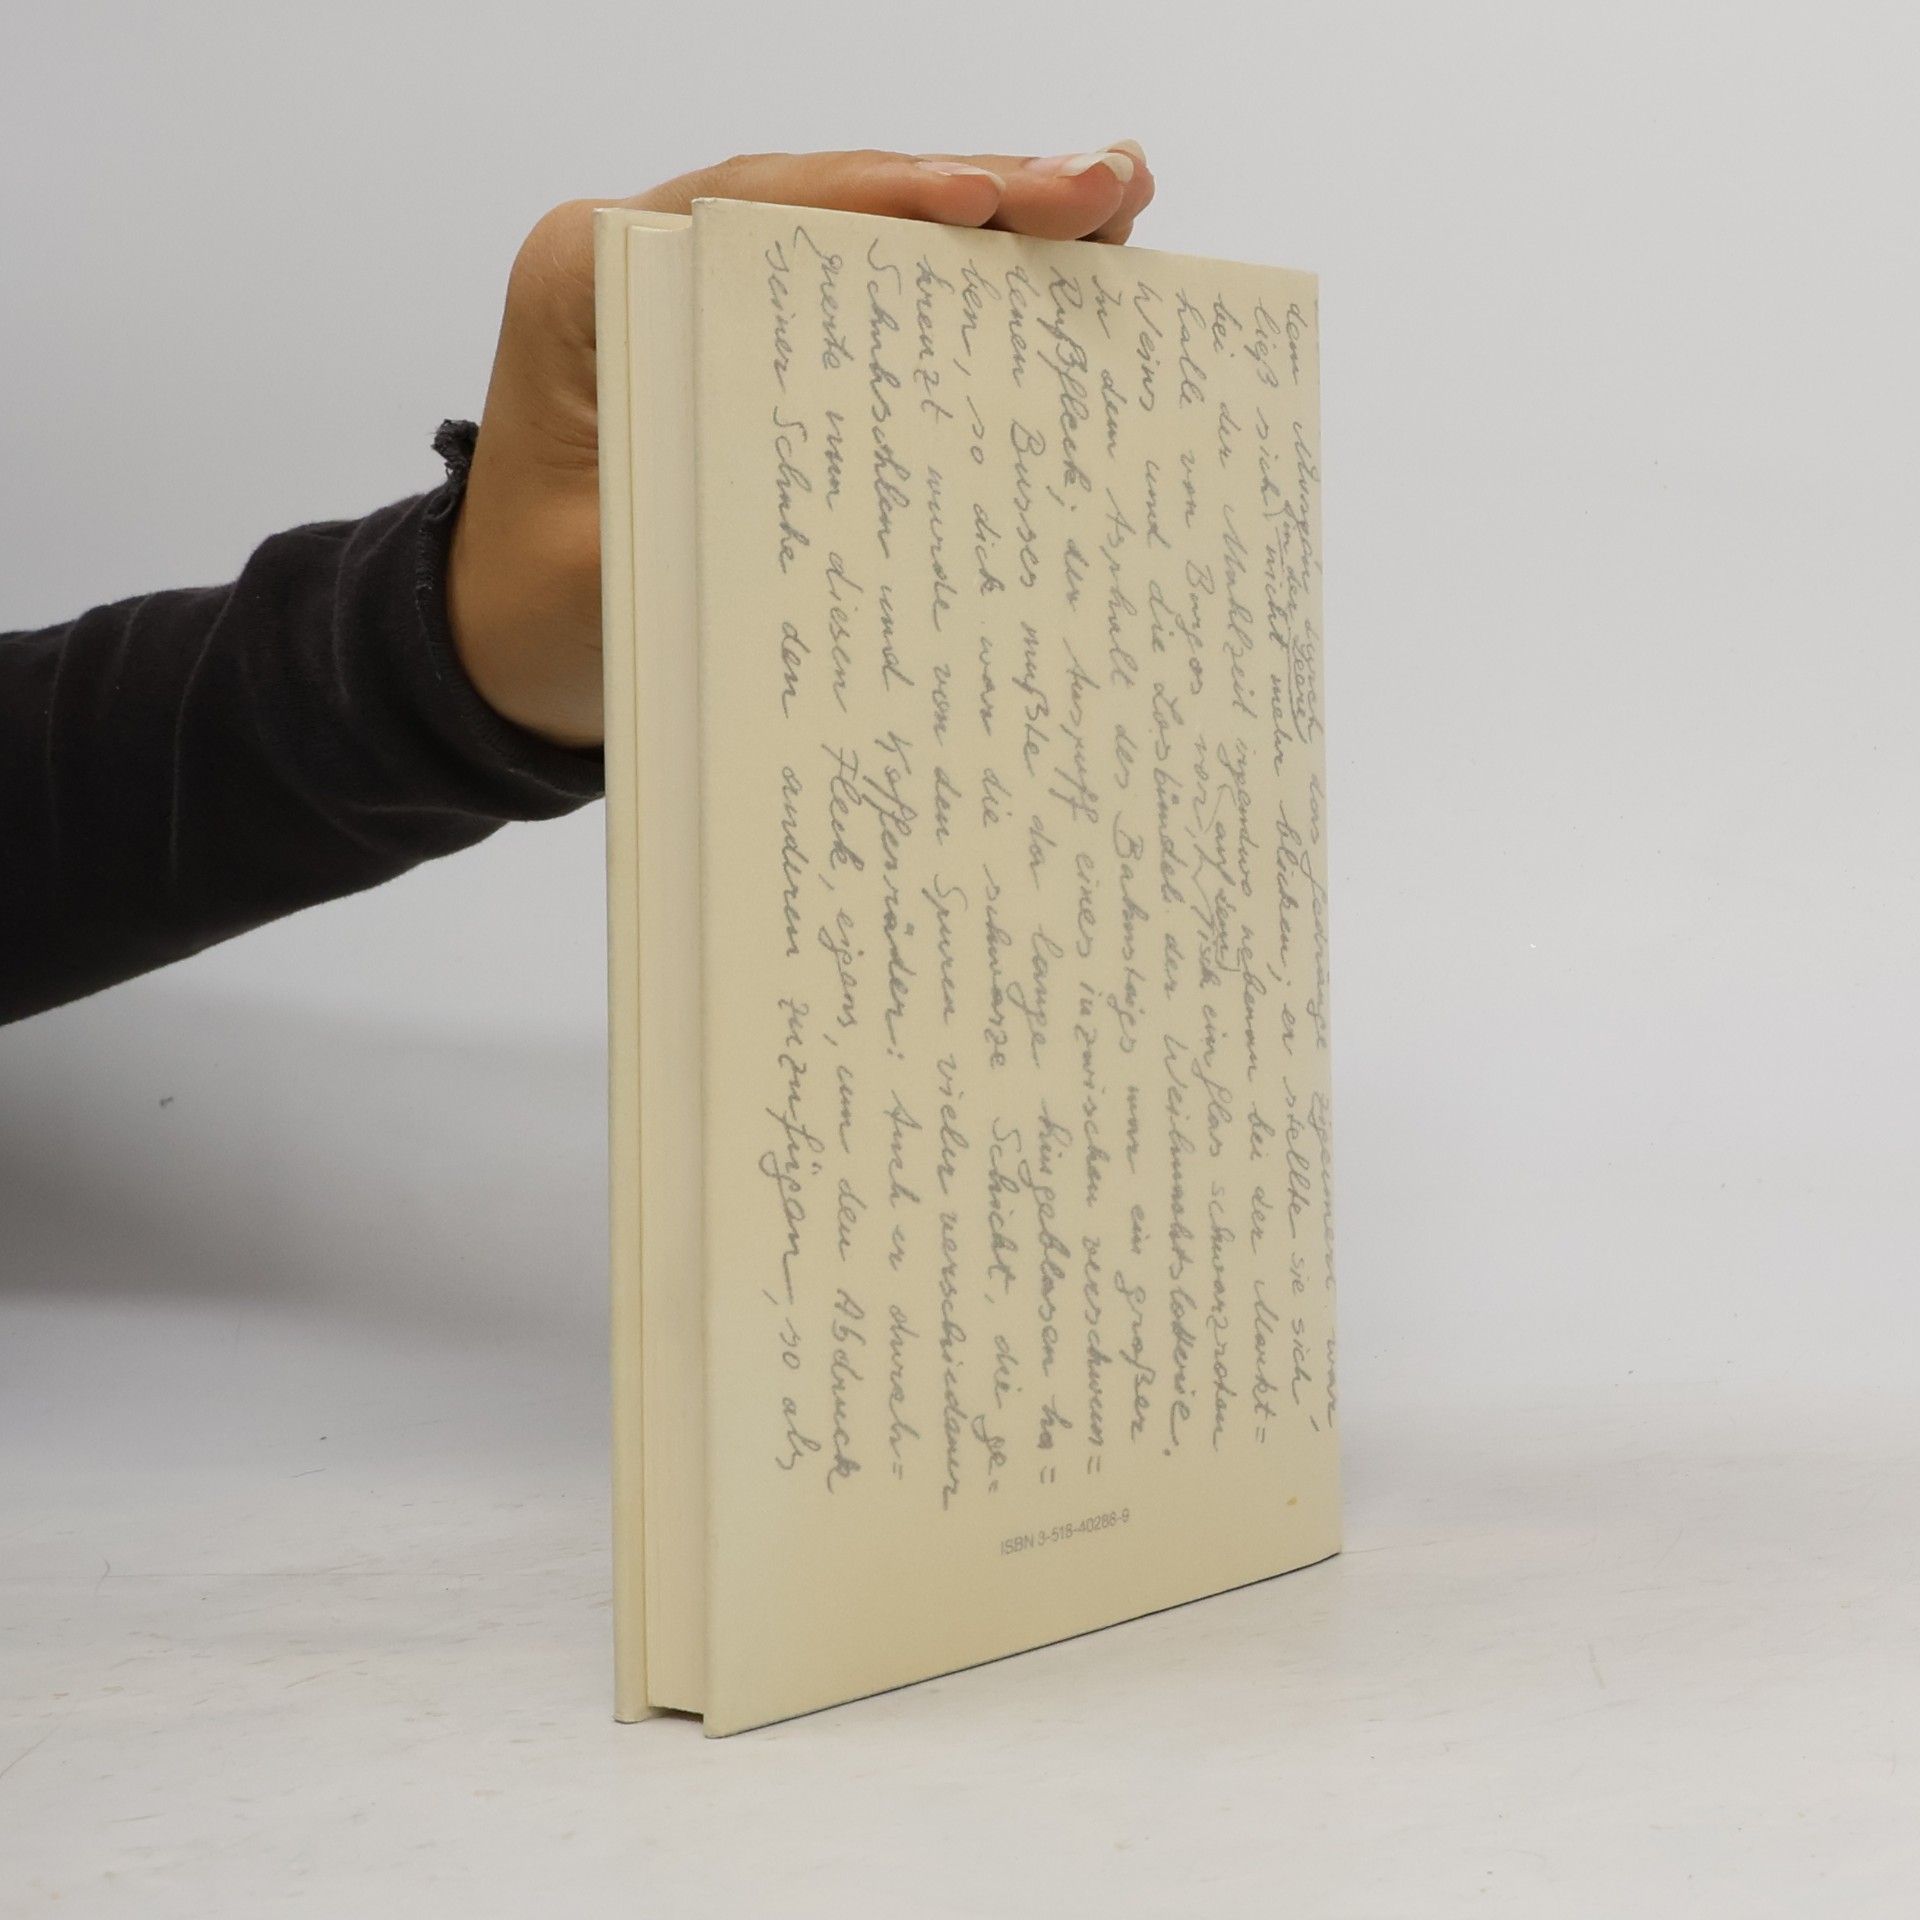 dem Museum durch das Gedränge zigeunern war,
ließ sich (in der Leere) nicht mehr blicken; er stellte sie sich
bei der Mahlzeit irgendwo nebenan bei der Markt=
halle von Burgos vor, (auf dem) Tisch ein Glas schwarzroten
Weins und die Losbündel der Weihnachtslotterie.
In dem Asphalt des Bahnsteigs war ein großer
Rußfleck; der Auspuff eines inzwischen verschwun=
denen Busses mußte da lange hingeblasen ha=
ben, so dick war die schwarze Schicht, die ge=
kreuzt wurde von den Spuren vieler verschiedener
Schuhsohlen und Kofferräder: Auch er durch=
querte nun diesen Fleck, eigens, um den Abdruck
seiner Schuhe den anderen zuzufügen, so als
ISBN 3-518-40288-9